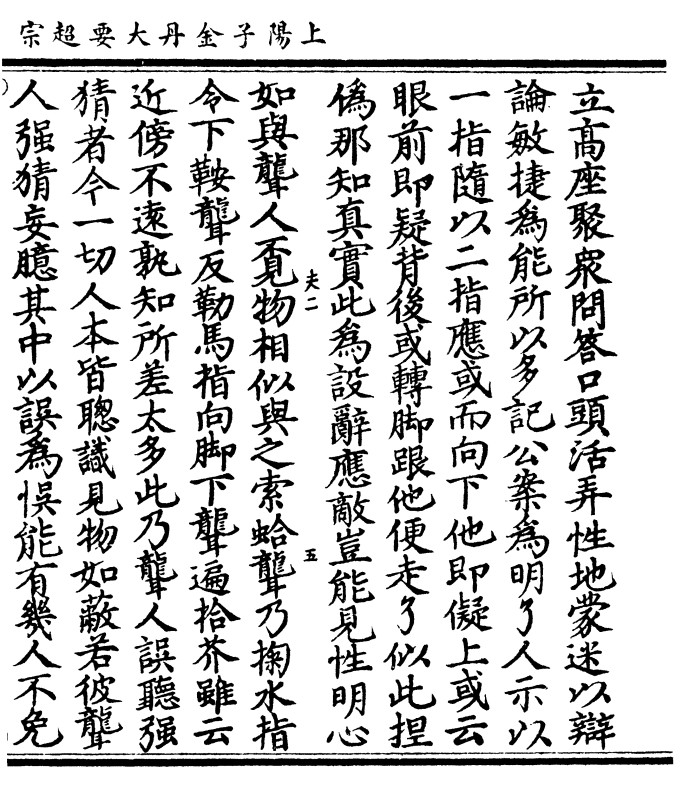 上陽子金丹大要超宗
立高座聚衆問答口頭活弄性地蒙迷以辯
論敏捷爲能所以多記公案爲明了人示以
一指隨以二指應或而向下他即儗上或云
眼前即疑背後或轉脚跟他便走了似此捏
僞那知真實此爲設辭應敵豈能見性明心
夫二
五
如與聾人覓物相似與之索蛤聾乃掬水指
令下鞍聾反勒馬指向脚下聾遍拾芥雖云
近傍不遠孰知所差太多此乃聾人誤聽强
猜者今一切人本皆聰識見物如蔽若彼聾
人强猜妄臆其中以誤爲悞能有幾人不免